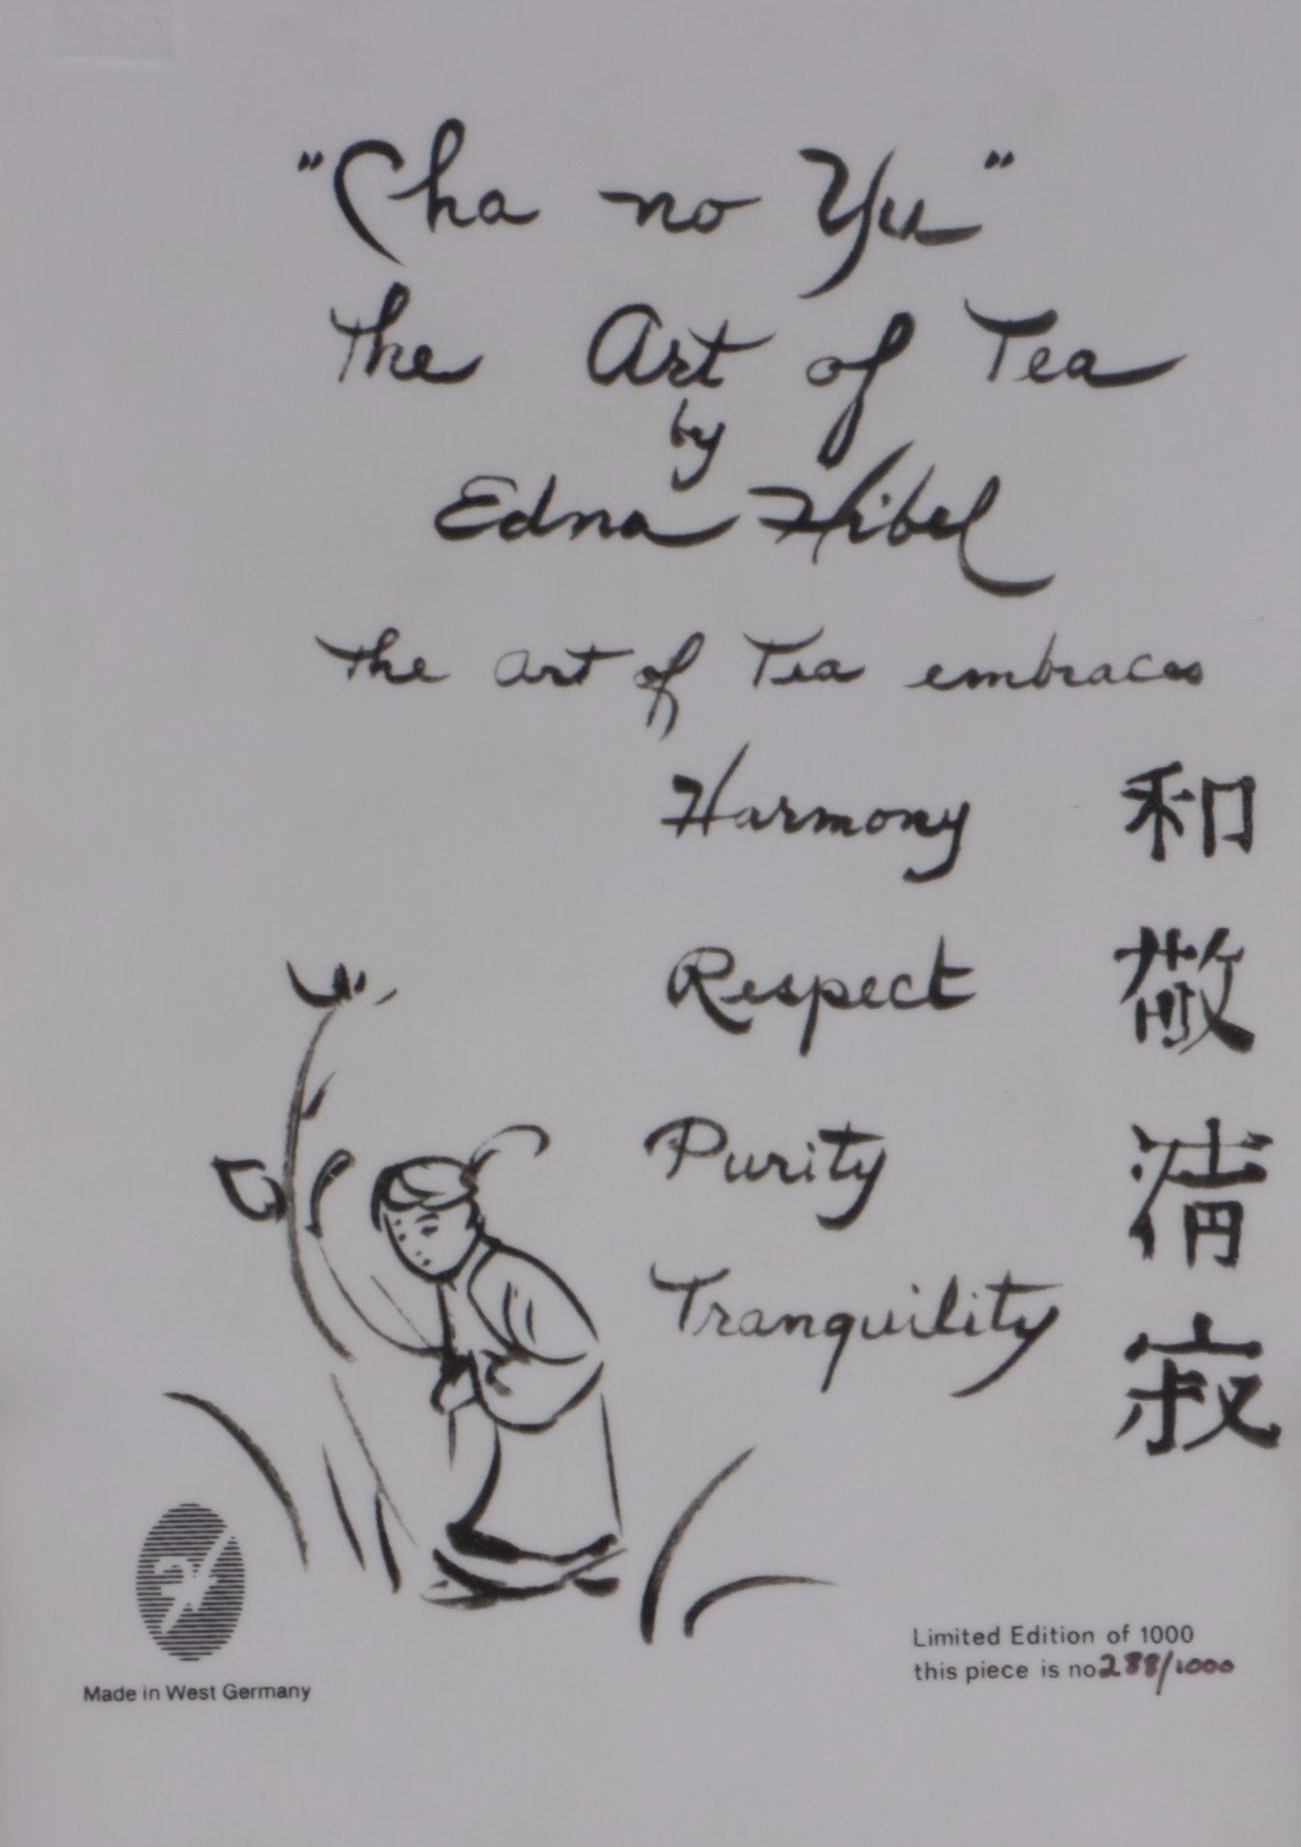 "Cha no Yu"
the Art of Tea
by
Edna Hibel
the art of Tea embraces
Harmony 和
Respect 敬
Purity 清
Tranquility 寂
Limited Edition of 1000
this piece is no 288/1000
Made in West Germany